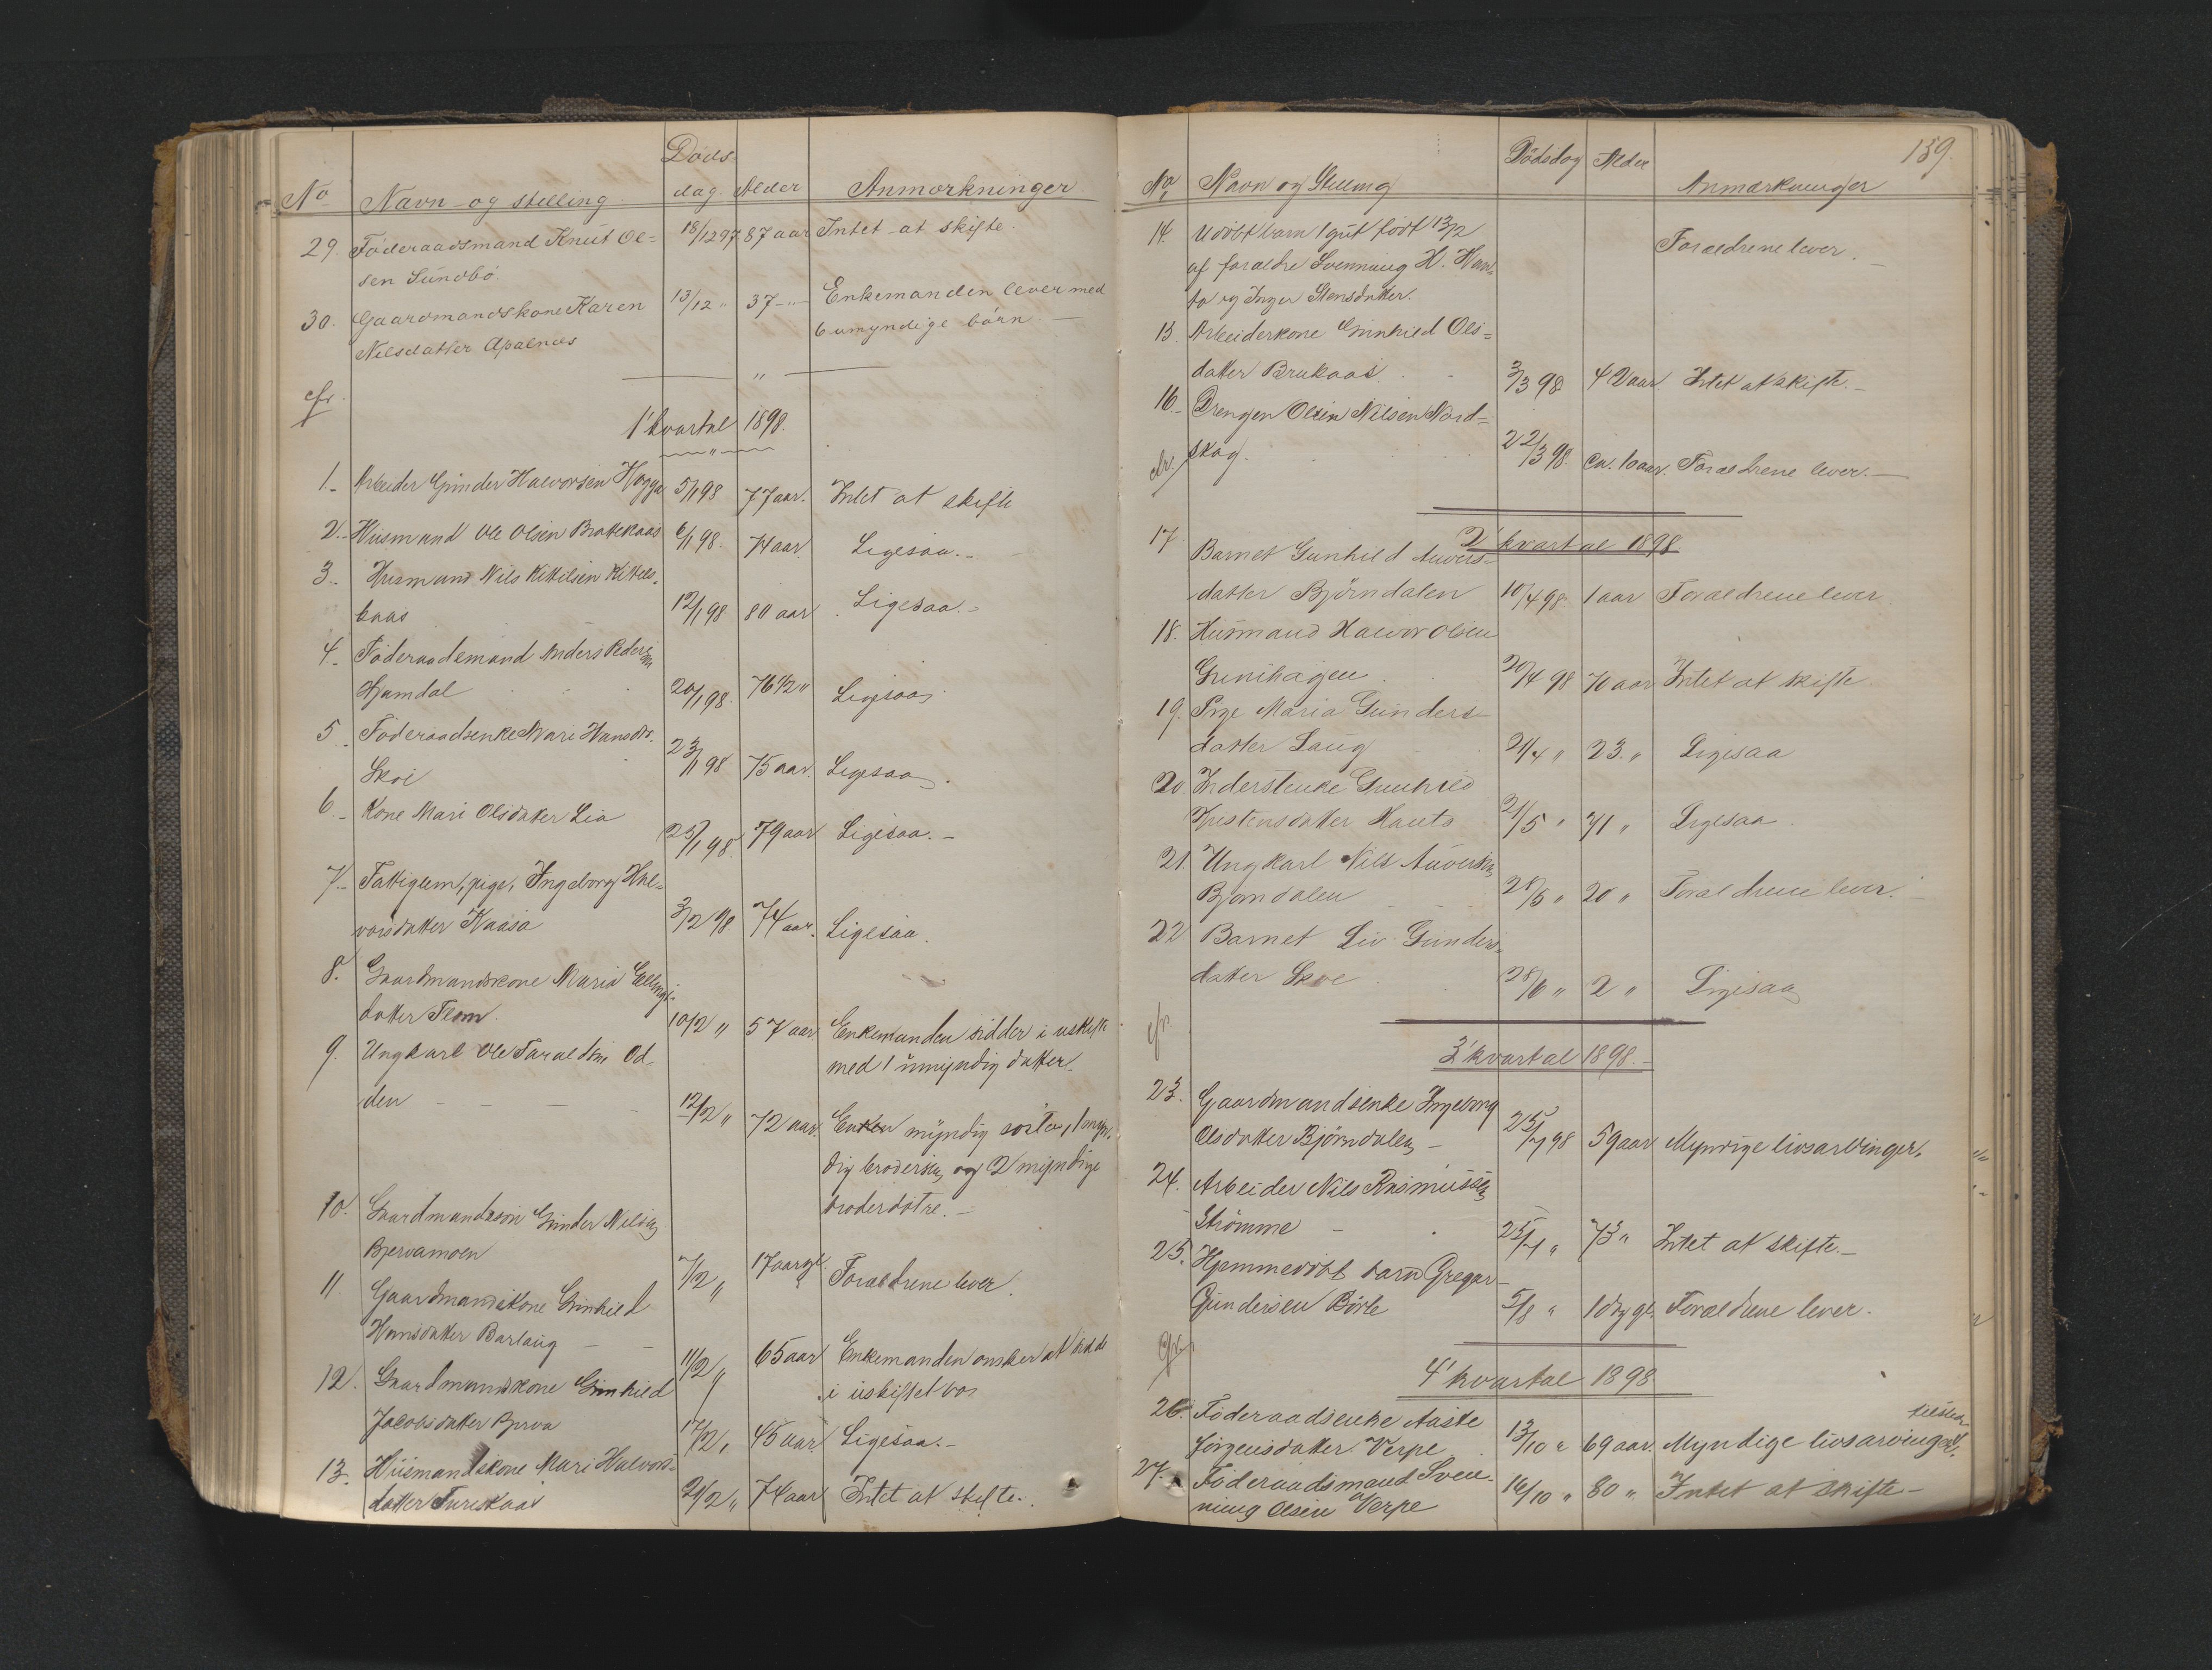 Døds
No Navn og stilling dag. Alder Anmærkninger
29. Föderaadsmand Knut Ol= 18/12 97 87 aar Intet at skifte.
sen Sundbö.
30. Gaardmandskone Karen 13/12 " 37 -"- Enkemanden lever med
Nilsdatter Apalnæs 6 umyndige börn. —
"
cfr.
1' kvartal 1898.
"
1.- Arbeider Gunder Halvorsen Hogga 5/1 98 77 aar. Intet at skifte
2.- Husmand Ole Olsen Brattekaas 6/1 98. 74 aar Ligesaa.-
3.- Husmand Nils Kittilsen Kittels-
kaas 12/1 98 80 aar Ligesaa.-
4.- Föderaadsmand Anders Pedersen
Hjamdal 20/1 98. 76 1/2 " Ligesaa
5.- Föderaadsenke Mari Hansdtr.
Skoi 23/1 98 75 aar. Ligesaa.
6.- Kone Mari Olsdatter Lia
25/1 98. 79 aar Ligesaa.-
7.- Fattiglem, pige, Ingeborg Hal-
vorsdatter Kaasa 3/2 98. 74 aar. Ligesaa.
8. Gaardmandskone Maria Ellings-
datter Flom. 10/2 " 57 aar Enkemanden sidder i uskifte
med 1 umyndig datter.
9. Ungkarl Ole Taraldsen Od-
den - - - - 12/2 " 72 aar. Enken myndig söster, 1 myn-
dig brodersön og 2 myndige
broderdötre.-
10. Gaardmandssön Gunder Nilsen
Bjervamoen 7/2 " 17 aar gl. Forældrene lever.
11 Gaardmandskone Gunhild
Hansdatter Barlaug - - 11/2 " 65 aar Enkemanden önsker at sidde
i uskiftet bo.
12. Gaardmandskone Gunhild
Jacobsdatter Bjerva 17/2 " 45 aar Ligesaa.-
13. Husmandskone Mari Halvors-
datter Tureskaas 21/2 " 74 aar Intet at skifte.
159.
No Navn og Stilling Dödsdag Alder Anmærkninger
14. Udöbt barn 1 gut födt 13/2
af forældre Svenning H. Haat- Forældrene lever. —
to og Inger Stensdatter.
15. Arbeiderkone Gunhild Ols=
datter Brukaas. 3/3 98 42 aar Intet at skifte.-
16.- Drengen Olein Nilsen Nord=
skog. 22/3 98. Ca. 10 aar. Forældrene lever.—
cfr.
2' kvartal 1898
17. Barnet Gunhild Auvers-
datter Björndalen 10/4 98. 1 aar Forældrene lever
18. Husmand Halvor Olsen
Grinihagen 20/4 98 70 aar Intet at skifte.
19. Pige Maria Gunders-
datter Laug 21/4 " 23. " Ligesaa
20 Inderstenke Gunhild
21/5 " 71 " Ligesaa.
21. Ungkarl Nils Auversen
Bjorndalen 28/5 " 20 " Forældrene lever.
22 Barnet Liv Gunders-
datter Skoe 28/6 " 2 " Ligesaa
cfr.
3' kvartal 1898.-
23. Gaardmandsenke Ingeborg
Olsdatter Björndalen - 25/7 98 59 aar Myndige livsarvinger.
24. Arbeider Nils Rasmussen
Strömme - 25/7 " 73 " Intet at skifte.-
25. Hjemmedöbt barn Gregar
Gundersen Börte 5/8 " 1 dag gl. Forældrene lever.
cfr.
4' kvartal 1898.
26. Föderaadsenke Aaste
Jörgensdatter Verpe 13/10 " 69 aar Myndige livsarvinger
27. Föderaadsmand Sven-
ning Olsen Verpe 16/10 " 80 " Intet at skifte-